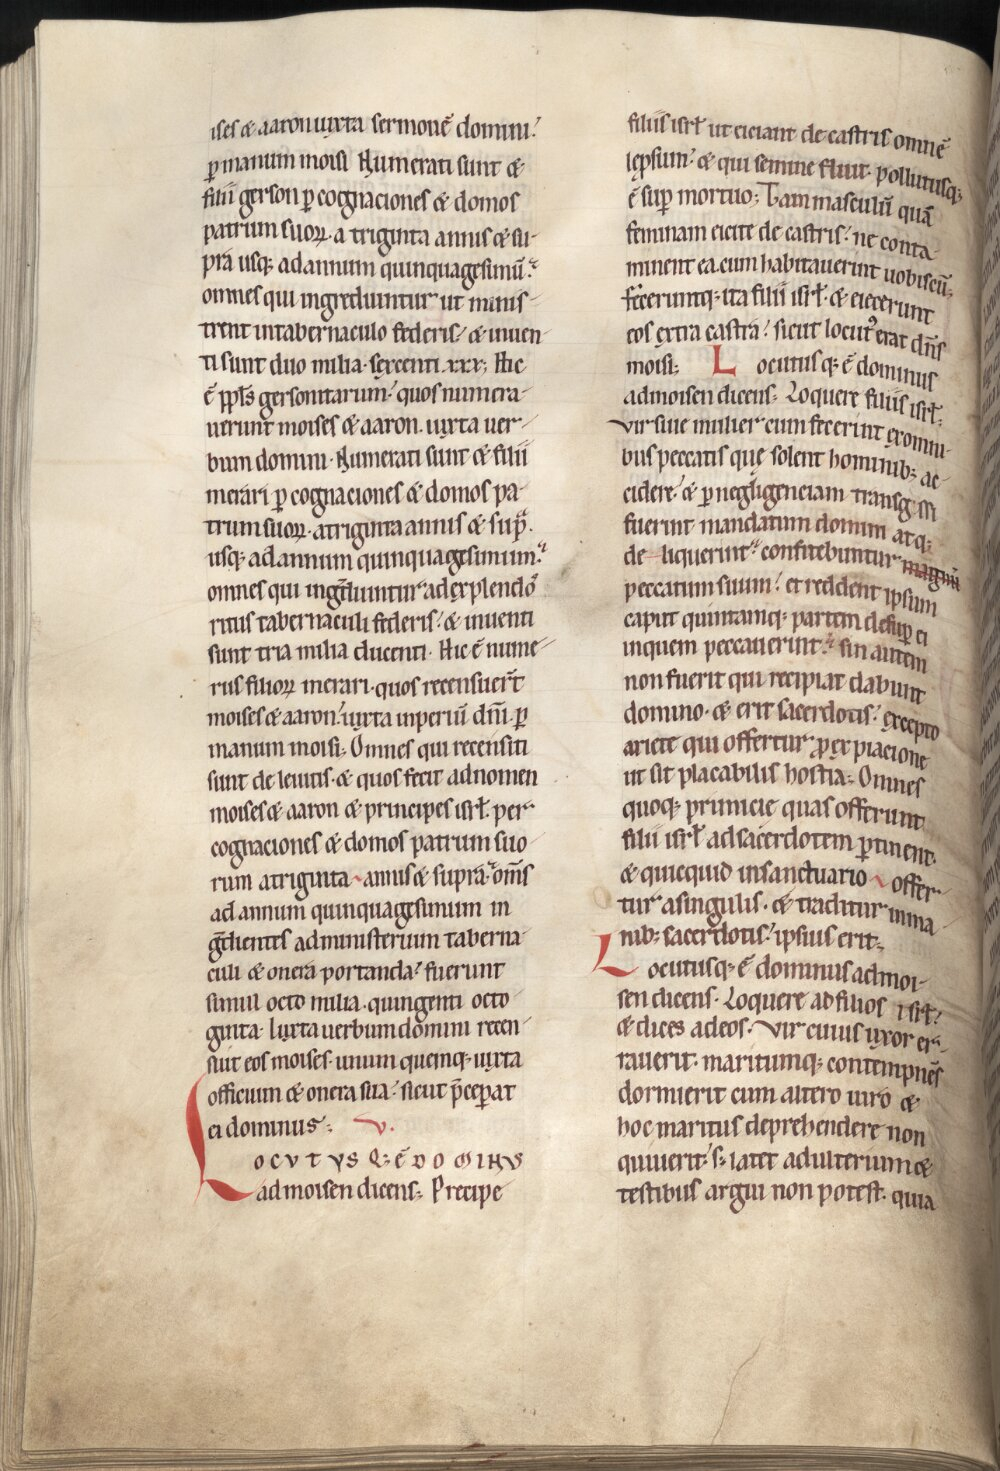 ises & aaron iuxta sermonē domini.
ꝑ manum moisi Numerati sunt &
filii gerson ꝑ cognaciones & domos
patrum suoꝝ. a triginta annis & su-
pra usq; ad annum quinquagesimū.
omnes qui ingrediuntur ut minis-
trent in tabernaculo federis. & inuen-
ti sunt duo milia. sexcenti .xxx; Hic
ē ppl̄s gersonitarum. quos numera-
uerunt moises & aaron. iuxta uer-
bum domini. Numerati sunt & filii
merari ꝑ cognaciones & domos pa-
trum suoꝝ. a triginta annis & supͣ.
usq; ad annum quinquagesimum.
omnes qui ingrediuntur ad explendos
ritus tabernaculi federis. & inuenti
sunt tria milia ducenti. Hic ē nume-
rus filioꝝ merari. quos recensuer̄t
moises & aaron. iuxta inperiū dn̄i. ꝑ
manum moisi. Omnes qui recensiti
sunt de leuitis. & quos fecit ad nomen
moises & aaron & principes isrł. per
cognaciones & domos patrum suo-
rum a triginta annis & supra. om̄s
ad annum quinquagesimum in
gredientes administerium taberna-
culi & onera portanda. fuerunt
simul octo milia. quingenti octo-
ginta. Iuxta uerbum domini recen-
suit eos moises. unum quemq; iuxta
officium & onera sua. sicut p̄ceꝑat
ei dominus. v.
LOCVTVS Q; Ē DOMINVS
ad moisen dicens. Precipe
filiis isrł ut eiciant de castris omnē
leprosum. & qui semine fluit. pollutusq;
ē suꝑ mortuo; Tam masculū quā
feminam eicite de castris. ne conta-
minent ea. cum habitauerint uobiscū;
feceruntq; ita filii isrł. & eiecerunt
eos extra castra. sicut locutꝰ erat dn̄s
moisi; Locutusq; ē dominus
ad moisen dicens. Loquere filiis isrł.
Vir siue mulier cum fecerint ex omni-
bus peccatis que solent hominib; ac-
cidere. & ꝑ negligenciam transgressi
fuerint mandatum domini atq;
de-liquerint. confitebuntur
peccatum suum. et reddent ipsum
caput quintamq; partem desuꝑ ei
in quem peccauerint. sin autem
non fuerit qui recipiat dabunt
domino. & erit sacerdotis. excepto
ariete qui offertur ꝓ expiacione
ut sit placabilis hostia. Omnes
quoq; primicie quas offerunt
filii isrł ad sacerdotem ꝑtinent.
& quicquid in sanctuario offer-
tur a singulis. & traditur in ma-
nib; sacerdotis. ipsius erit.
Locutusq; ē dominus ad moi-
sen dicens. Loquere ad filios isrł.
& dices ad eos. Vir cuius uxor er-
rauerit. maritumq; contempnēs
dormierit cum altero uiro &
hoc maritus deprehendere non
quiuerit. s; latet adulterium &
testibus argui non potest. quia